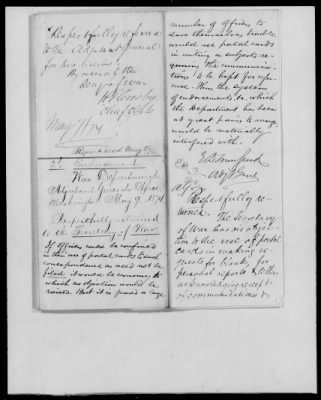 Respectfully referred
to the Adjutant General
for his views.
By order of the
Secy of War
H T Crosby
Chief Clk
May 7/74
2d Endorsement
War Department,
Adjutant General's Office
Washington May 9, 1874.
Respectfully returned
to the Secretary of War.
If officers could be confined
in their use of postal cards to such
correspondence as need not be
filed it would be economy to
which no objection would be
raised. But it is feared a large
number of officers to
save themselves trouble
would use postal cards
in writing on subjects re-
quiring the communica-
tions to be kept for refer-
ence. Thus the system
of endorsements to which
the Department has been
at great pains to arrange
would be materially
interfered with.
E D Townsend
Adjt Genl
Respectfully re-
turned. The Secretary
of War has no objec-
tion to the use of postal
cards in making re-
quests for blanks, for
personal reports & letters
acknowledging receipt
of communications &